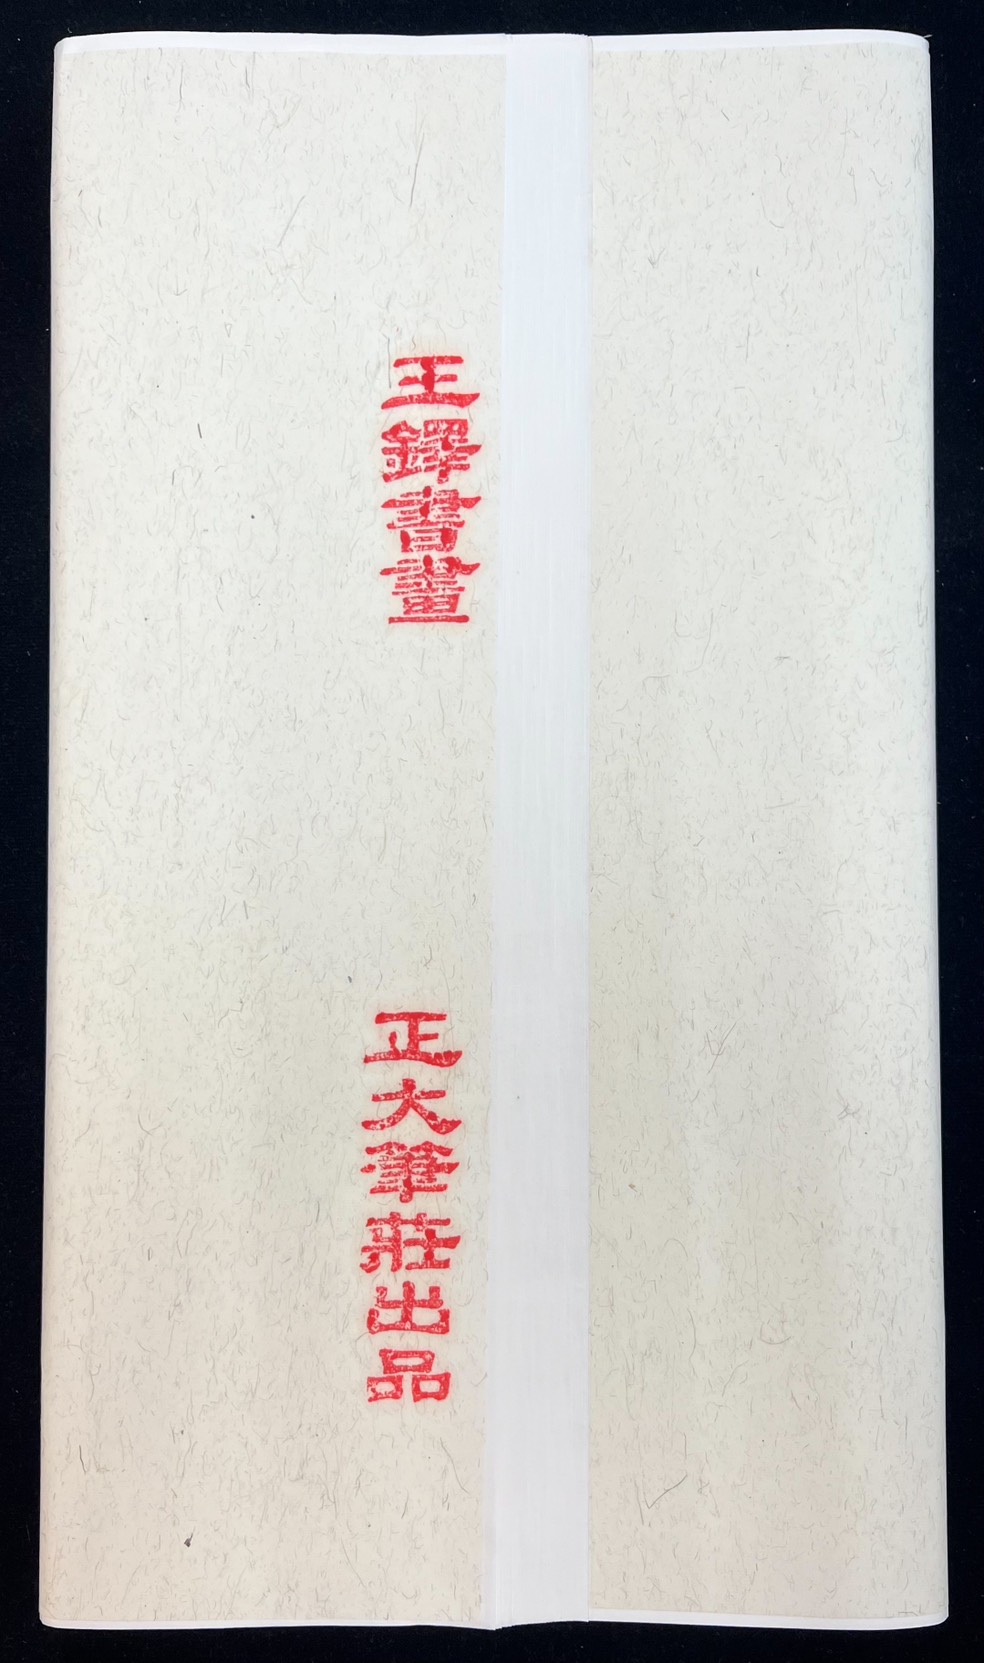 王鐸書畫
正大筆莊出品